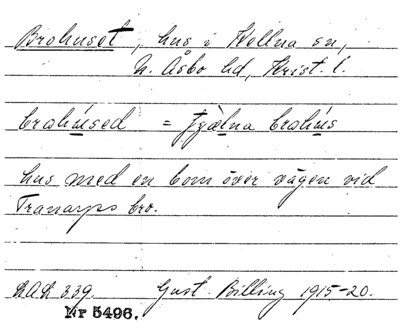 Brohuset, hus i Kellna sn,
N. Åsbo hd, Krist. l.
brahúsed = brahús
hus med en bom över vägen vid
Tranarps bro.
339. Gust. Billing 1915-20.
Nr 5496.